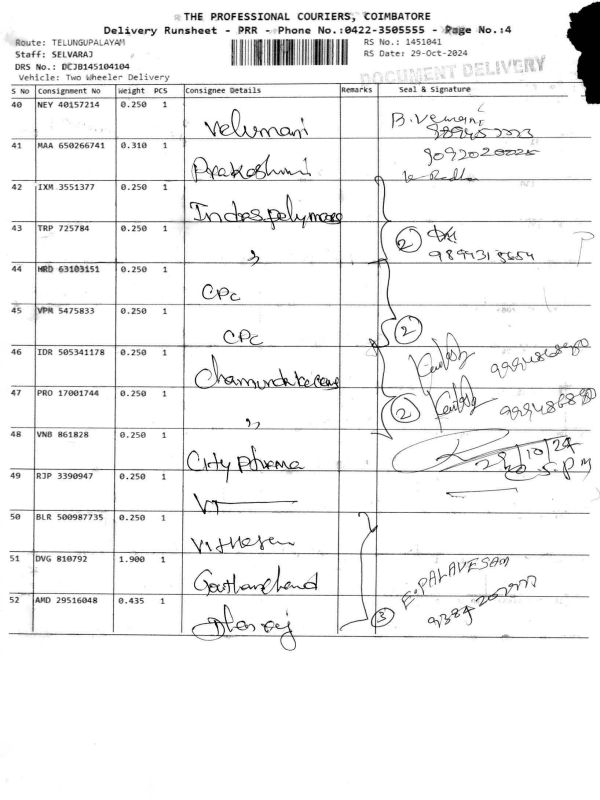 THE PROFESSIONAL COURIERS, COIMBATORE
Delivery Runsheet - PRR - Phone No.:0422-3505555 - Page No.:4
Route: TELUNGUPALAYAM RS No.: 1451041
Staff: SELVARAJ RS Date: 29-Oct-2024
DRS No.: DCJB145104104
DOCUMENT DELIVERY
Vehicle: Two Wheeler Delivery
S No Consignment No Weight PCS Consignee Details Remarks Seal & Signature
40 NEY 40157214 0.250 1 Velumani
41 MAA 650266741 0.310 1
42 IXM 3551377 0.250 1
43 TRP 725784 0.250 1 " 2
9894318654
44 HRD 63103151 0.250 1 CPC
45 VPM 5475833 0.250 1 CPC 2
46 IDR 505341178 0.250 1
47 PRO 17001744 0.250 1 " 2
48 VNB 861828 0.250 1 City Pharma 29/10/24
49 RJP 3390947 0.250 1 VT
50 BLR 500987735 0.250 1
51 DVG 810792 1.900 1 E. PALAVESAM
52 AMD 29516048 0.435 1 3